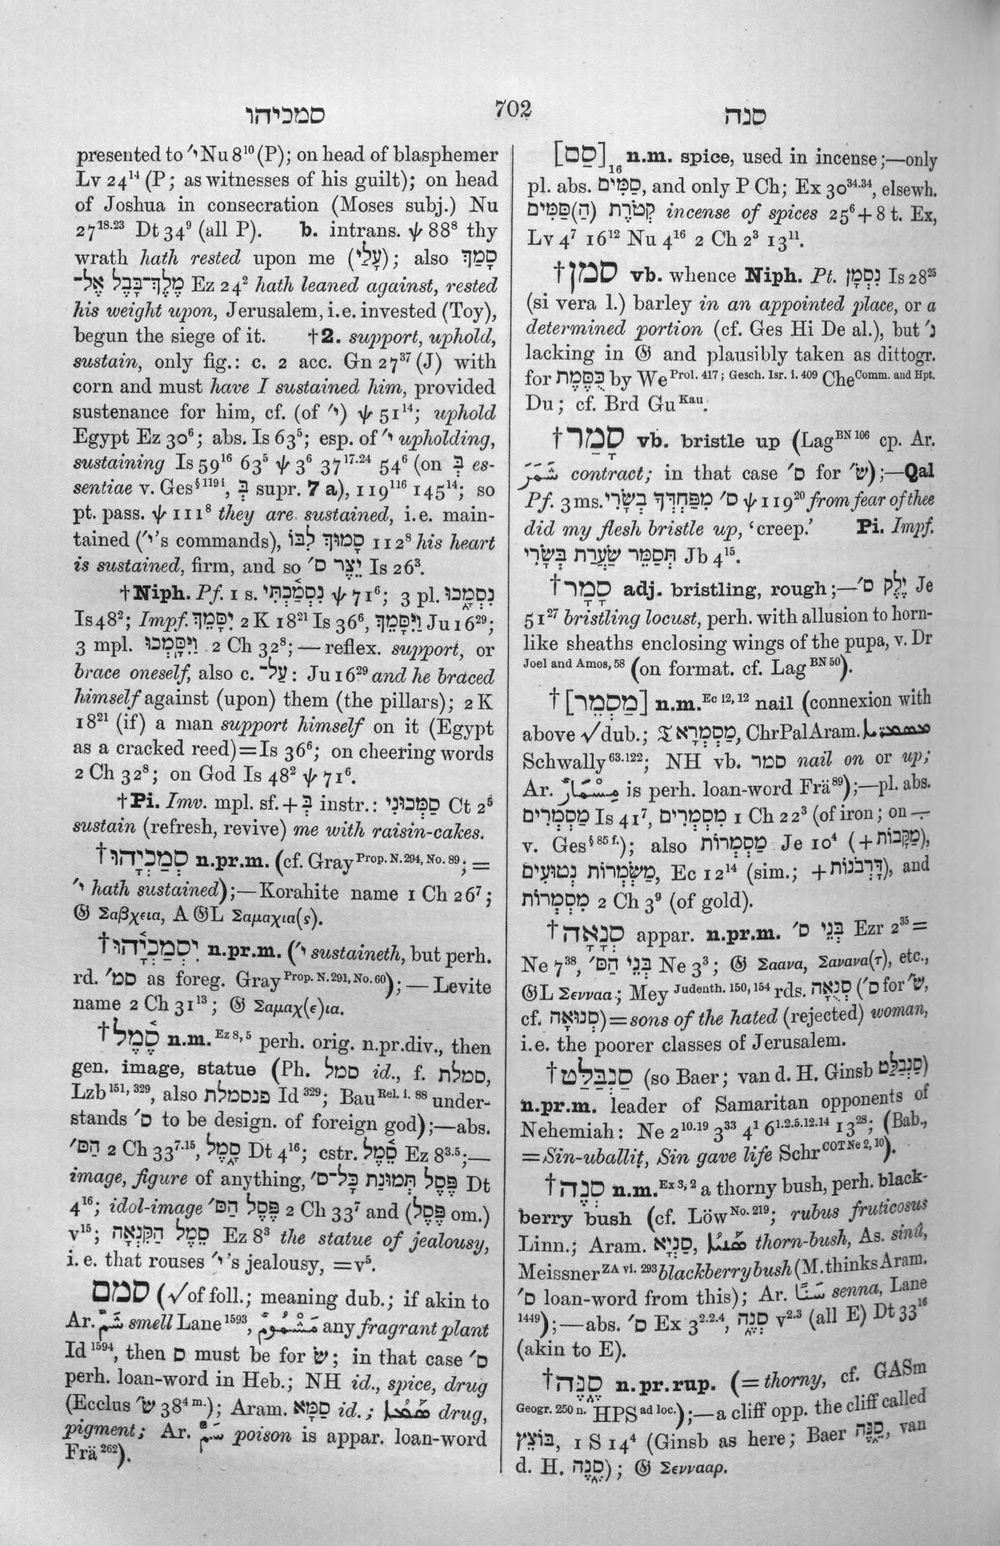 סמכיהו
702
סנה
presented to ׳י Nu 8¹⁰ (P); on head of blasphemer
Lv 24¹⁴ (P; as witnesses of his guilt); on head
of Joshua in consecration (Moses subj.) Nu
27¹⁸·²³ Dt 34⁹ (all P). b. intrans. ψ 88⁸ thy
wrath hath rested upon me (עָלַי); also סָמַךְ
מֶלֶךְ־בָּבֶל אֶל־ Ez 24² hath leaned against, rested
his weight upon, Jerusalem, i.e. invested (Toy),
begun the siege of it. †2. support, uphold,
sustain, only fig.: c. 2 acc. Gn 27³⁷ (J) with
corn and must have I sustained him, provided
sustenance for him, cf. (of ׳י) ψ 51¹⁴; uphold
Egypt Ez 30⁶; abs. Is 63⁵; esp. of ׳י upholding,
sustaining Is 59¹⁶ 63⁵ ψ 3⁶ 37¹⁷·²⁴ 54⁶ (on בְּ es-
sentiae v. Ges§¹¹⁹ⁱ, בְּ supr. 7 a), 119¹¹⁶ 145¹⁴; so
pt. pass. ψ 111⁸ they are sustained, i.e. main-
tained (׳י's commands), סָמוּךְ לִבּוֹ 112⁸ his heart
is sustained, firm, and so יֵצֶר ס׳ Is 26³.
†Niph. Pf. 1 s. נִסְמַכְתִּי ψ 71⁶; 3 pl. נִסְמָכוּ
Is 48²; Impf. יִסָּמֵךְ 2 K 18²¹ Is 36⁶, וַיִּסָּמֵךְ Ju 16²⁹;
3 mpl. וַיִּסָּמְכוּ 2 Ch 32⁸;—reflex. support, or
brace oneself, also c. עַל־: Ju 16²⁹ and he braced
himself against (upon) them (the pillars); 2 K
18²¹ (if) a man support himself on it (Egypt
as a cracked reed)=Is 36⁶; on cheering words
2 Ch 32⁸; on God Is 48² ψ 71⁶.
†Pi. Imv. mpl. sf. + בְּ instr.: סַמְּכוּנִי Ct 2⁵
sustain (refresh, revive) me with raisin-cakes.
†סְמַכְיָהוּ n.pr.m. (cf. Gray Prop. N. 294, No. 89; =
׳י hath sustained);—Korahite name 1 Ch 26⁷;
𝔊 Σαβχεια, A 𝔊L Σαμαχια(ς).
†יִסְמַכְיָהוּ n.pr.m. (׳י sustaineth, but perh.
rd. סמ׳ as foreg. Gray Prop. N. 291, No. 60);—Levite
name 2 Ch 31¹³; 𝔊 Σαμαχ(ε)ια.
†סֶמֶל n.m. Ez 8, 5 perh. orig. n.pr.div., then
gen. image, statue (Ph. סמל id., f. סמלת,
Lzb 151, 329, also פנסמלת Id 329; Bau Rel. i. 88 under-
stands ס׳ to be design. of foreign god);—abs.
הַסּ׳ 2 Ch 33⁷·¹⁵, סָמֶל Dt 4¹⁶; cstr. סֵמֶל Ez 8³·⁵;—
image, figure of anything, פֶּסֶל תְּמוּנַת כָּל־ס׳ Dt
4¹⁶; idol-image פֶּסֶל הַסּ׳ 2 Ch 33⁷ and (פֶּסֶל om.)
v¹⁵; סֵמֶל הַקִּנְאָה Ez 8³ the statue of jealousy,
i. e. that rouses ׳י's jealousy, =v⁵.
סמם (√of foll.; meaning dub.; if akin to
Ar. شَمَّ smell Lane 1593, مَشْمُومٌ any fragrant plant
Id 1594, then ס must be for שׁ; in that case ס׳
perh. loan-word in Heb.; NH id., spice, drug
(Ecclus שׁ׳ 38⁴ m.); Aram. סַמָּא id.; ܣܰܡܳܐ drug,
pigment; Ar. سَمّ poison is appar. loan-word
Frä 262).
[סַם]₁₆ n.m. spice, used in incense;—only
pl. abs. סַמִּים, and only P Ch; Ex 30³⁴·³⁴, elsewh.
קְטֹרֶת (הַ)סַּמִּים incense of spices 25⁶ + 8 t. Ex,
Lv 4⁷ 16¹² Nu 4¹⁶ 2 Ch 2³ 13¹¹.
†סמן vb. whence Niph. Pt. נִסְמָן Is 28²⁵
(si vera l.) barley in an appointed place, or a
determined portion (cf. Ges Hi De al.), but נ׳
lacking in 𝔊 and plausibly taken as dittogr.
for כֻּסֶּמֶת by We Prol. 417; Gesch. Isr. i. 409 Che Comm. and Hpt.
Du; cf. Brd Gu Kau.
†סָמַר vb. bristle up (Lag BN 106 cp. Ar.
شَمَّرَ contract; in that case ס׳ for שׁ׳);—Qal
Pf. 3 ms. ס׳ מִפַּחְדְּךָ בְשָׂרִי ψ 119²⁰ from fear of thee
did my flesh bristle up, ‘creep.’ Pi. Impf.
תְּסַמֵּר שַׂעֲרַת בְּשָׂרִי Jb 4¹⁵.
†סָמָר adj. bristling, rough;—יֶלֶק ס׳ Je
51²⁷ bristling locust, perh. with allusion to horn-
like sheaths enclosing wings of the pupa, v. Dr
Joel and Amos, 58 (on format. cf. Lag BN 50).
†[מַסְמֵר] n.m. Ec 12, 12 nail (connexion with
above √dub.; 𝔗 מַסְמְרָא, ChrPalAram.
Schwally 63. 122; NH vb. סמר nail on or up;
Ar. مِسْمَارٌ is perh. loan-word Frä 89);—pl. abs.
מַסְמְרִים Is 41⁷, מִסְמְרִים 1 Ch 22³ (of iron; on
v. Ges § 85 f.); also מַסְמְרוֹת Je 10⁴ (+מַקָּבוֹת),
מַשְׂמְרוֹת נְטוּעִים, Ec 12¹⁴ (sim.; +דָּרְבֹנוֹת), and
מִסְמְרוֹת 2 Ch 3⁹ (of gold).
†סְנָאָה appar. n.pr.m. בְּנֵי ס׳ Ezr 2³⁵=
Ne 7³⁸, בְּנֵי הַסּ׳ Ne 3³; 𝔊 Σααva, Σαvaνα(τ), etc.,
𝔊L Σενναα; Mey Judenth. 150, 154 rds. סְנֻאָה (ס׳ for שׂ׳,
cf. סְנוּאָה)=sons of the hated (rejected) woman,
i.e. the poorer classes of Jerusalem.
†סַנְבַלַּט (so Baer; van d. H. Ginsb סַנְבַלָּט)
n.pr.m. leader of Samaritan opponents of
Nehemiah: Ne 2¹⁰·¹⁹ 3³³ 4¹ 6¹·²·⁵·¹²·¹⁴ 13²⁸; (Bab.,
=Sin-uballiṭ, Sin gave life Schr COT Ne 2, 10).
†סְנֶה n.m. Ex 3, 2 a thorny bush, perh. black-
berry bush (cf. Löw No. 219; rubus fruticosus
Linn.; Aram. סַנְיָא, ܣܰܢܝܳܐ thorn-bush, As. sinû,
Meissner ZA vi. 293 blackberry bush (M. thinks Aram.
ס׳ loan-word from this); Ar. سَنًا senna, Lane
1449);—abs. ס׳ Ex 3²·²·⁴, סְנֶה v²·³ (all E) Dt 33¹⁶
(akin to E).
†סֶנֶּה n.pr.rup. (=thorny, cf. GASm
Geogr. 250 n. HPS ad loc.);—a cliff opp. the cliff called
בּוֹצֵץ, 1 S 14⁴ (Ginsb as here; Baer סֶנֶּה, van
d. H. סֶנֶה); 𝔊 Σενvααρ.